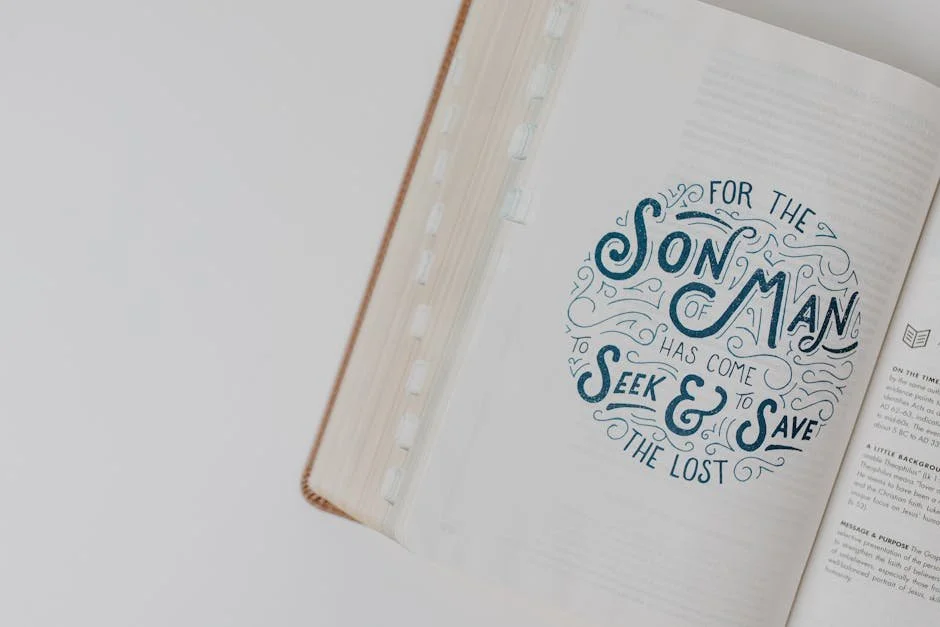 FOR THE
SON
OF MAN
HAS COME
TO SEEK & TO SAVE
THE LOST
ON THE TIME
by the same auth
evidence points t
identifies Acts as a
AD 62–63, indicat
in mid-60s. The eve
about 5 BC to AD 33
A LITTLE BACKGROU
Theophilus" (Lk 1
Theophilus means "lover
He seems to have been a
and the Christian faith. Luke
unique focus on Jesus' huma
(Is 53).
MESSAGE & PURPOSE The Gosp
selective presentation of the perso
to strengthen the faith of believers
of unbelievers, especially those fro
well-balanced portrait of Jesus, skil
humanity.